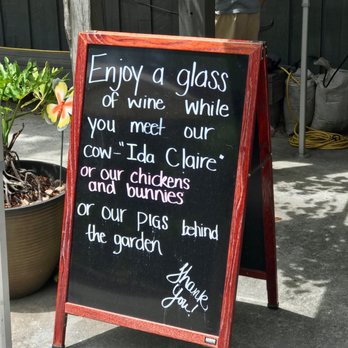 Enjoy a glass
of wine while
you meet our
cow-"Ida Claire"
or our chickens
and bunnies
or our pigs behind
the garden
Thank
you!